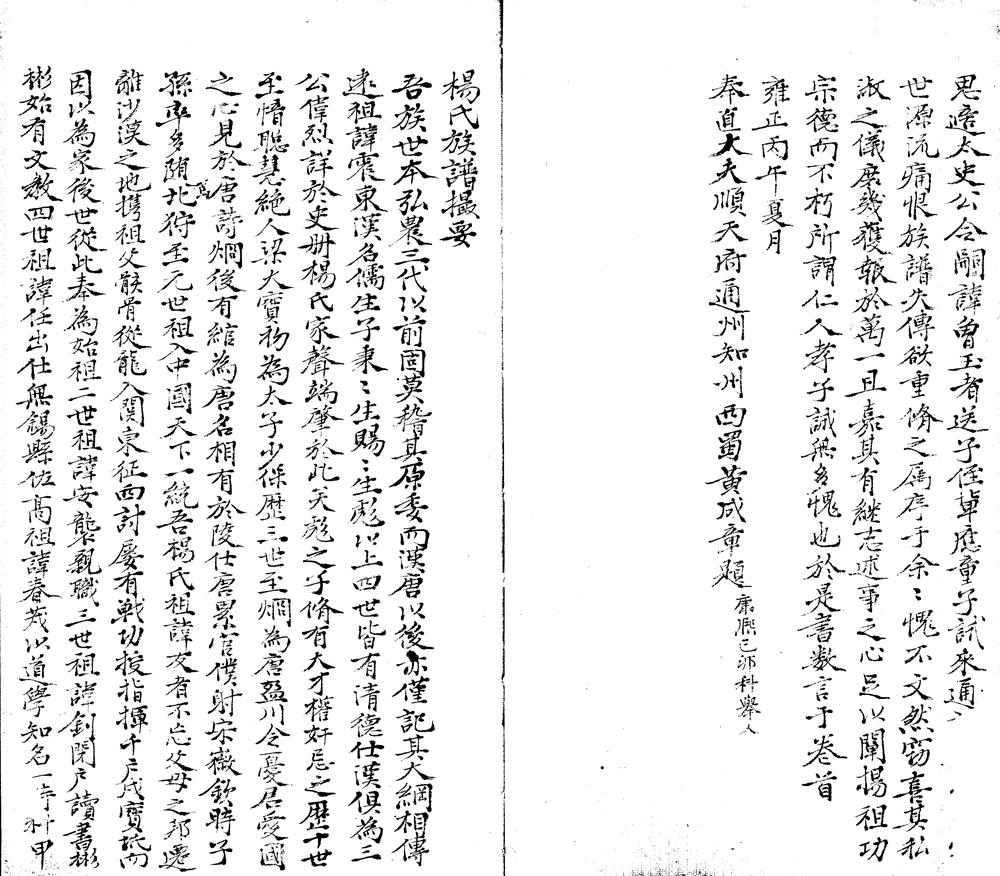 思遂太史公令嗣諱曾玉者送子侄輩應童子試來通
世源流痛恨族譜失傳欲重脩之屬序于余〻愧不文然窃喜其私
淑之儀庶幾獲報於萬一且嘉其有継志述事之心足以闡揚祖功
宗德而不朽所謂仁人孝子誠無多愧也於是書数言于卷首
雍正丙午夏月
奉直大夫順天府通州知州西蜀黃成章題 康熙己卯科舉人
楊氏族譜撮要
吾族世本弘農三代以前固莫稽其原委而漢唐以後亦僅記其大綱相傳
遠祖諱震東漢名儒生子秉〻生賜〻生彪以上四世皆有清德仕漢俱為三
公偉烈詳於史册楊氏家聲端肇於此矣彪之子脩有大才權奸忌之歷十世
至愔聰慧絶人梁大寶初為太子少保歷三世至烱為唐盈川令憂居愛國
之心見於唐詩烱後有綰為唐名相有於陵仕唐累官僕射宋徽欽時子
孫率多随駕北狩至元世祖入中國天下一統吾楊氏祖諱友者不忘父母之邦遷
離沙漠之地携祖父骸骨從龍入関東征西討屡有戦功授指揮千户戍寶坻而
因以為家後世從此奉為始祖二世祖諱安襲親職三世祖諱釗閉户讀書彬
彬始有文教四世祖諱任出仕無錫縣佐高祖諱春茂以道學知名一時科甲